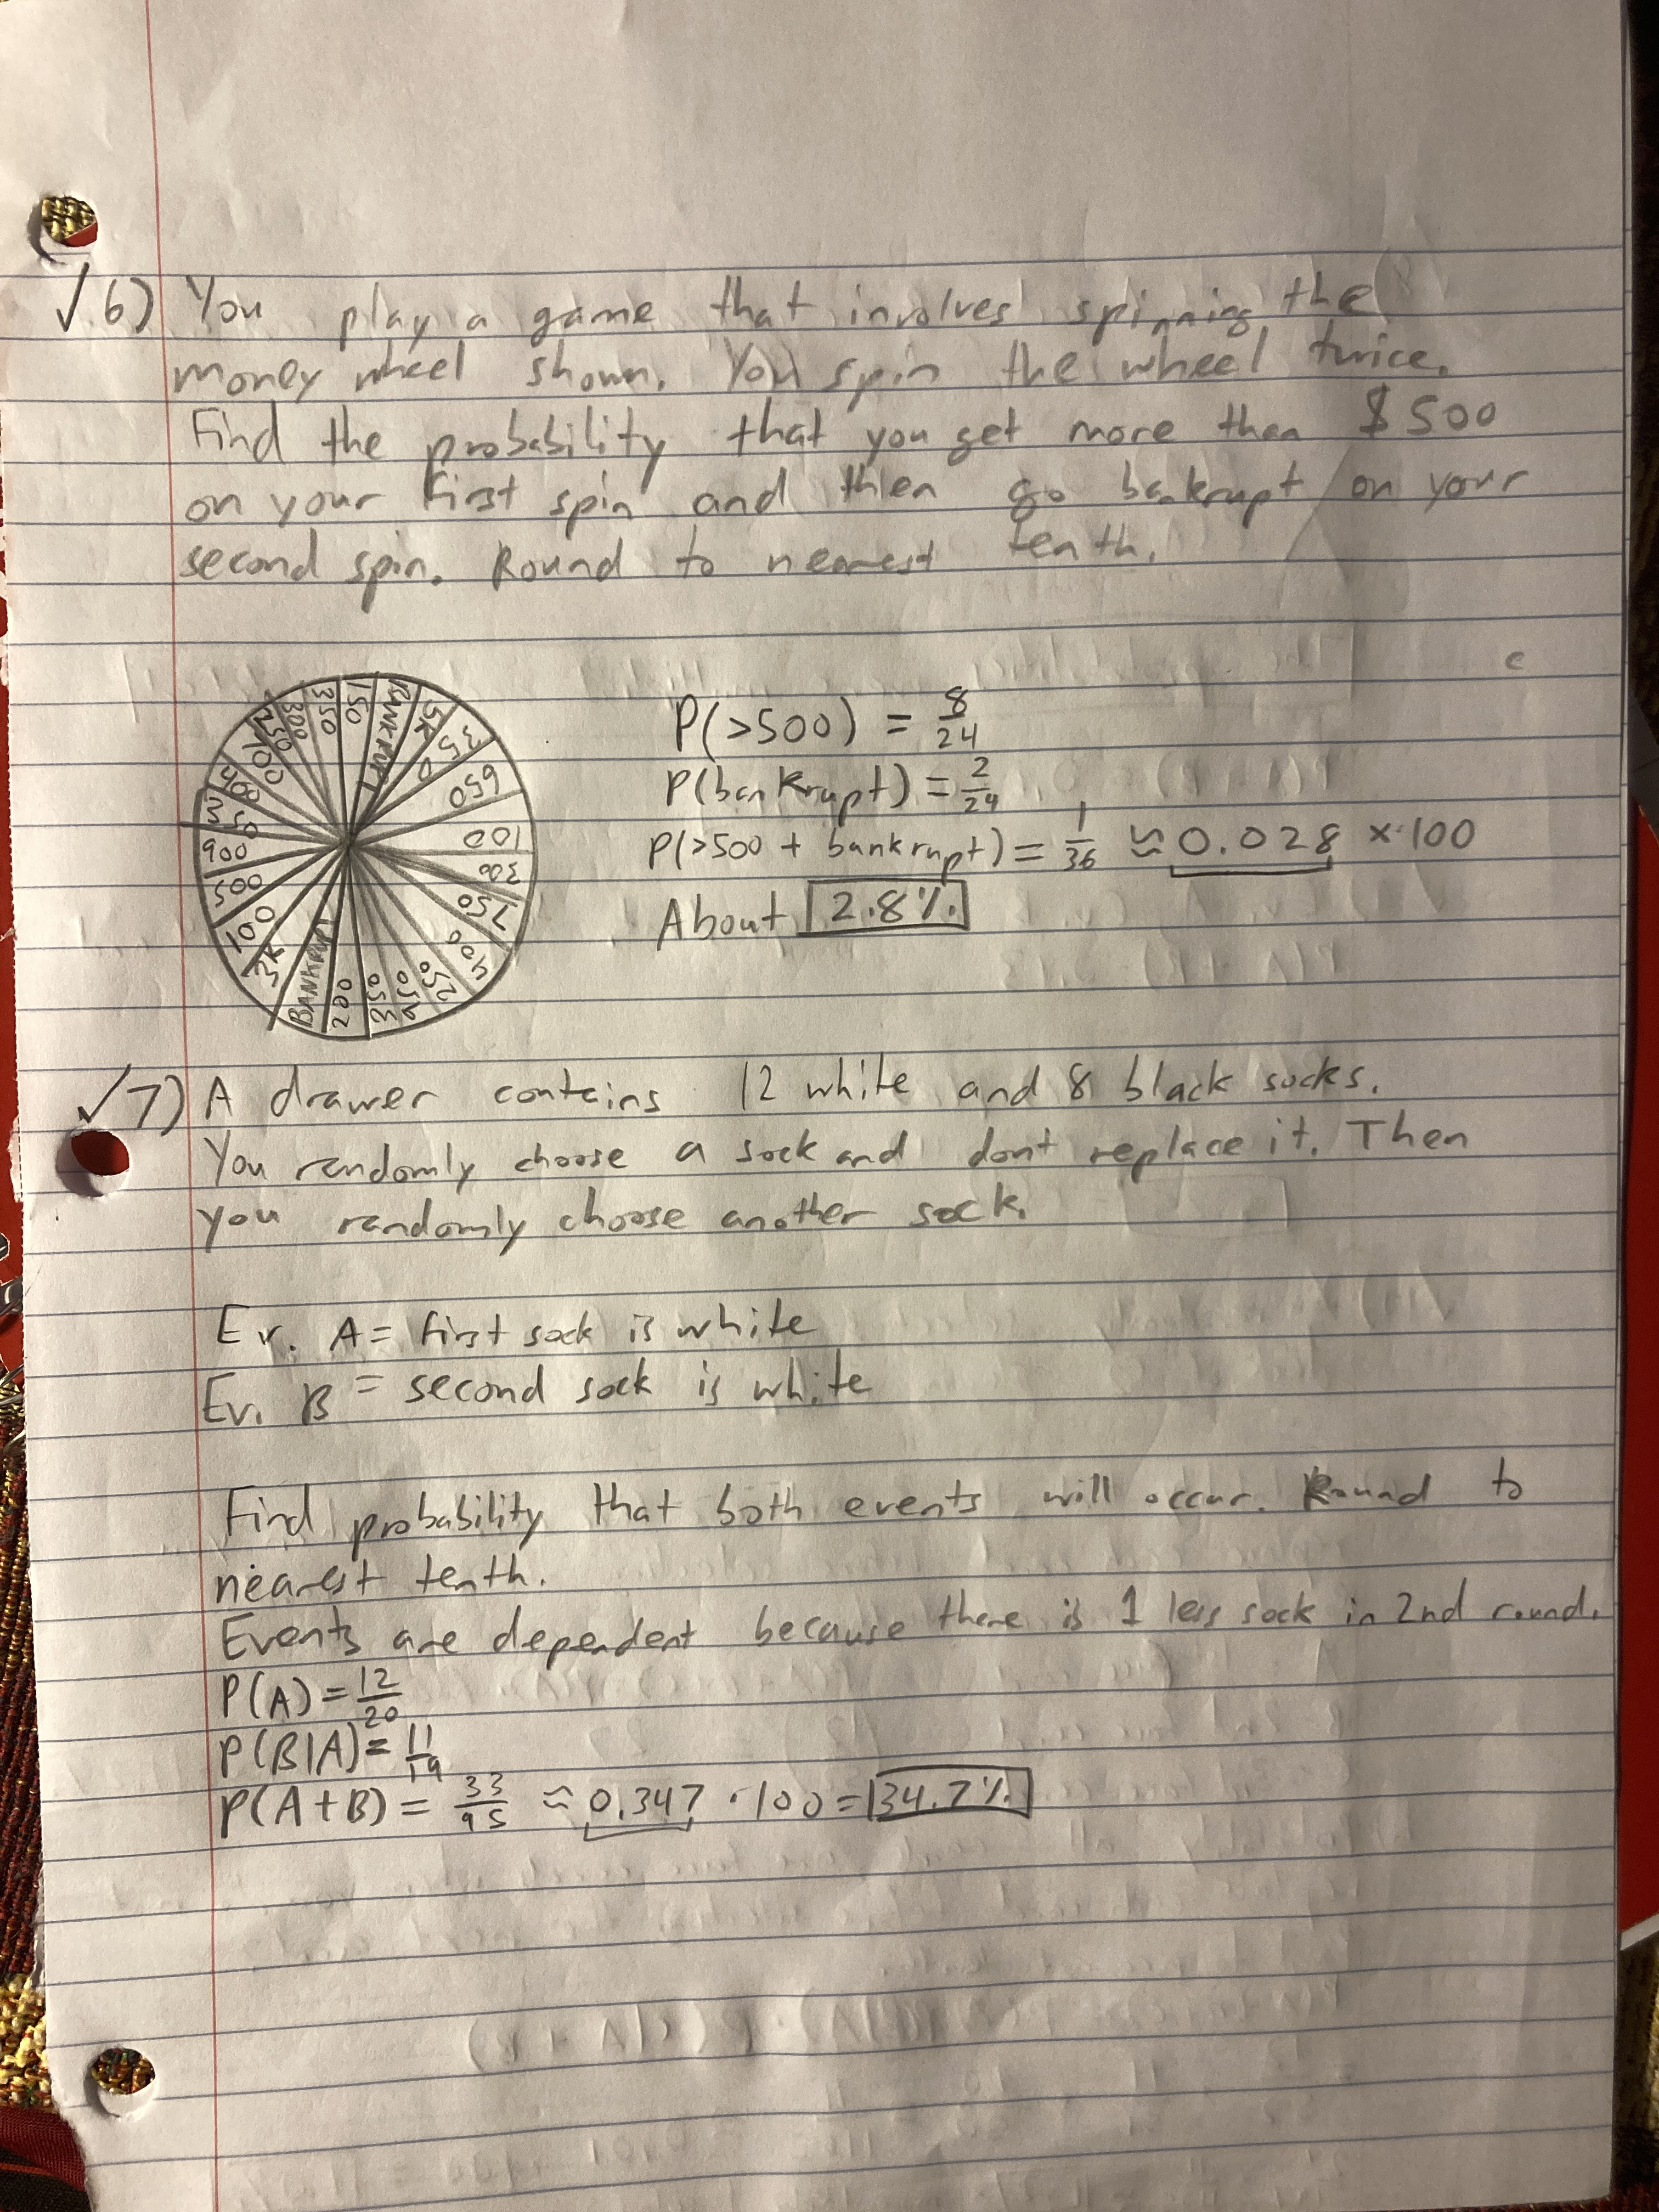 √6) You play a game that involves spinning the
money wheel shown. You spin the wheel twice.
Find the probability that you get more then $500
on your first spin and then go bankrupt on your
second spin. Round to nearest tenth.
150
BANKRUPT
5K
350
650
100
300
750
400
250
350
200
BANKRUPT
3K
100
500
900
400
700
250
300
350
P(>500) = 8/24
P(bankrupt) = 2/24
P(>500 + bankrupt) = 1/36 ≈ 0.028 x 100
About 2.8%
√7) A drawer contains 12 white and 8 black socks.
You randomly choose a sock and dont replace it. Then
you randomly choose another sock.
Ev. A = first sock is white
Ev. B = second sock is white
Find probability that both events will occur. Round to
nearest tenth.
Events are dependent because there is 1 less sock in 2nd round.
P(A) = 12/20
P(B|A) = 11/19
P(A+B) = 33/95 ≈ 0.347 · 100 = 34.7%